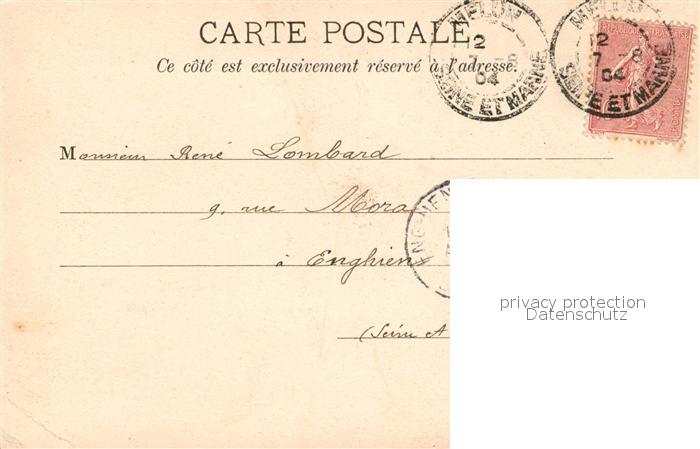 CARTE POSTALE
Ce côté est exclusivement réservé à l'adresse.
MELUN
12
04
SEINE ET MARNE
MELUN
12
7 -8
04
SEINE ET MARNE
Monsieur René Lombard
9, rue Mora
à Enghien
(Seine
privacy protection
Datenschutz